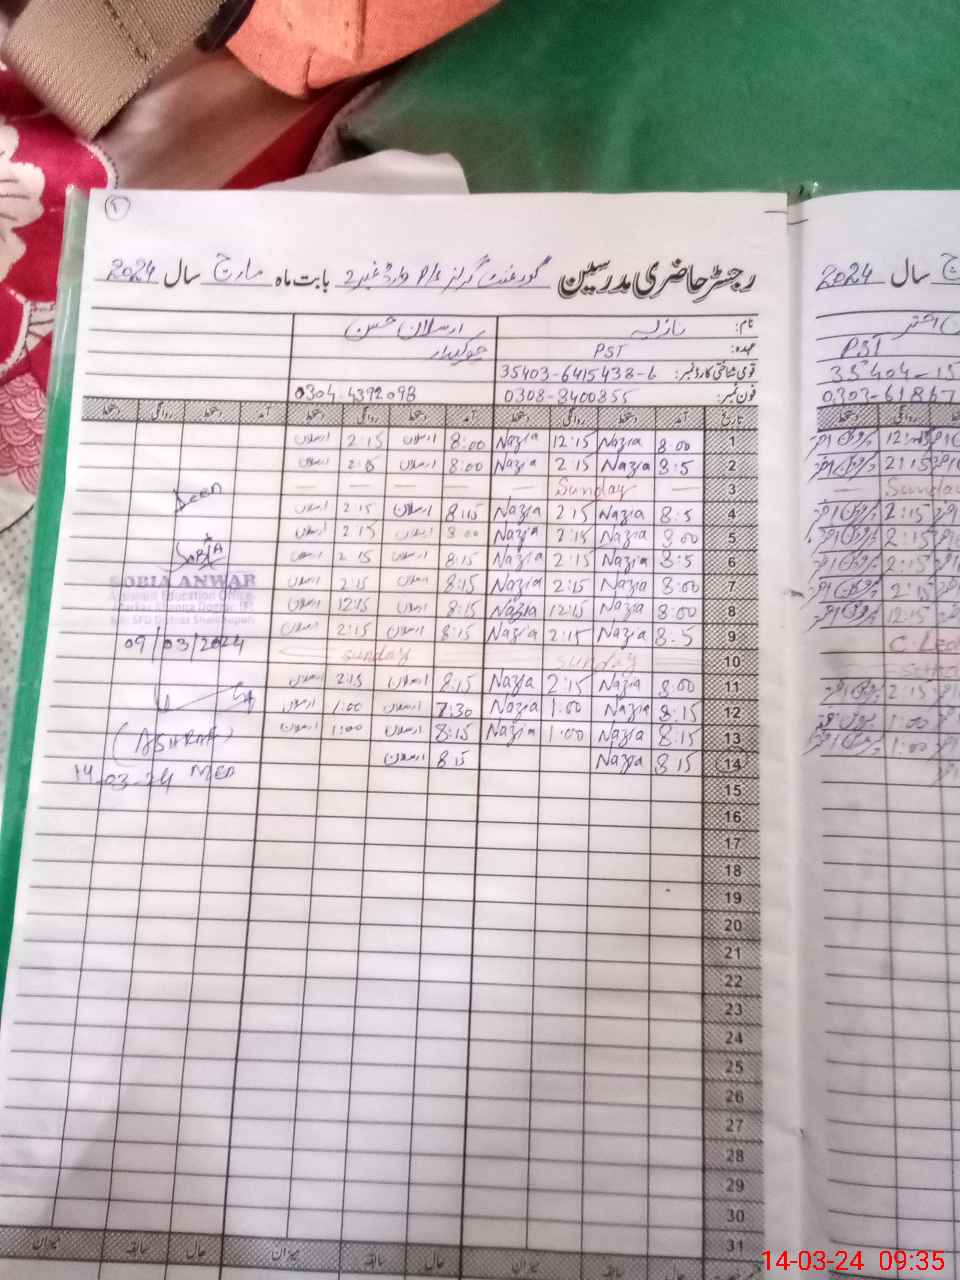 رجسٹر حاضری مدرسین گورنمنٹ گرلز P/S وارڈ نمبر 2 بابت ماہ مارچ سال 2024
نام: نازیہ ارسلان حسن
عہدہ: PST چوکیدار
قومی شناختی کارڈ نمبر: 35403-6415438-6
فون نمبر: 0308-8400855 0304-4392098
تاریخ آمد دستخط روانگی دستخط آمد دستخط روانگی دستخط آمد دستخط روانگی دستخط
1 8:00 Nazia 12:15 Nazia 8:00 ارسلان 2:15 ارسلان
2 8:5 Nazia 2:15 Nazia 8:00 ارسلان 2:15 ارسلان
3 — Sunday — — — — —
4 8:5 Nazia 2:15 Nazia 8:15 ارسلان 2:15 ارسلان
5 8:00 Nazia 2:15 Nazia 8:00 ارسلان 2:15 ارسلان
6 8:5 Nazia 2:15 Nazia 8:15 ارسلان 2:15 ارسلان
7 8:00 Nazia 2:15 Nazia 8:15 ارسلان 2:15 ارسلان
8 8:00 Nazia 12:15 Nazia 8:15 ارسلان 12:15 ارسلان
9 8:5 Nazia 2:15 Nazia 8:15 ارسلان 2:15 ارسلان
10 sunday sunday
11 8:00 Nazia 2:15 Nazia 8:15 ارسلان 2:15 ارسلان
12 8:15 Nazia 1:00 Nazia 7:30 ارسلان 1:00 ارسلان
13 8:15 Nazia 1:00 Nazia 8:15 ارسلان 1:00 ارسلان
14 8:15 Nazia 8:15 ارسلان
15
16
17
18
19
20
21
22
23
24
25
26
27
28
29
30
31
میزان سابقہ حال میزان سابقہ حال
Seen
Sobia
SOBIA ANWAR
Assistant Education Officer
09/03/2024
(ASHRAF)
14-03-24 MEA
سال 2024
PST
35404-15
0303-6186
14-03-24 09:35